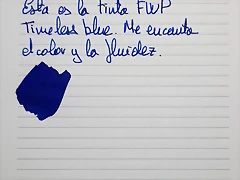 Esta es la tinta FWP
Timeless blue. Me encanta
el color y la fluidez.